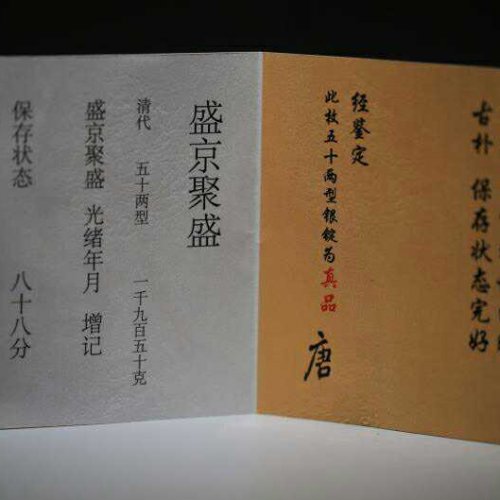 盛京聚盛
清代 五十两型 一千九百五十克
盛京聚盛 光绪年月 增记
保存状态 八十八分
古朴 保存状态完好
经鉴定
此枚五十两型银锭为真品
唐